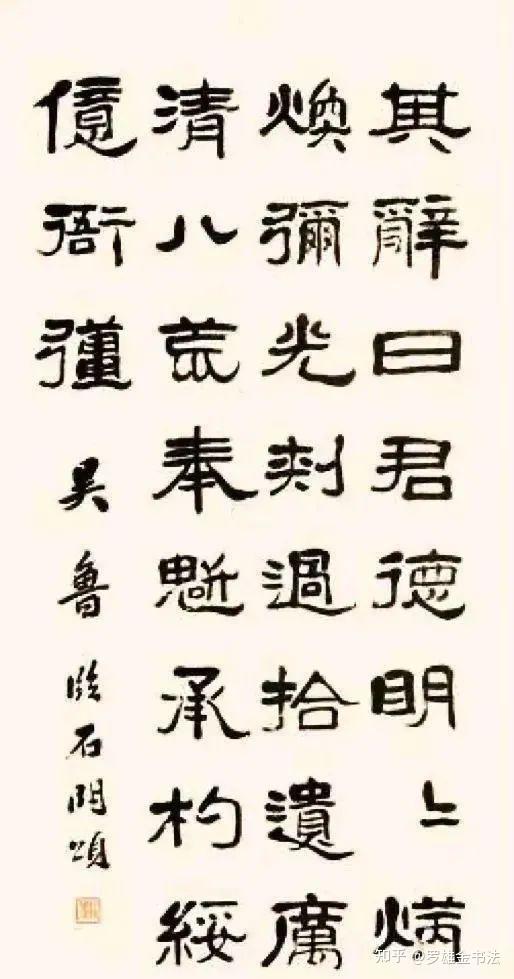 其辭曰君德明〻炳
煥彌光刺過拾遺厲
清八荒奉魁承杓綏
億衙彊
吳魯臨石門頌
知乎 @罗雄金书法